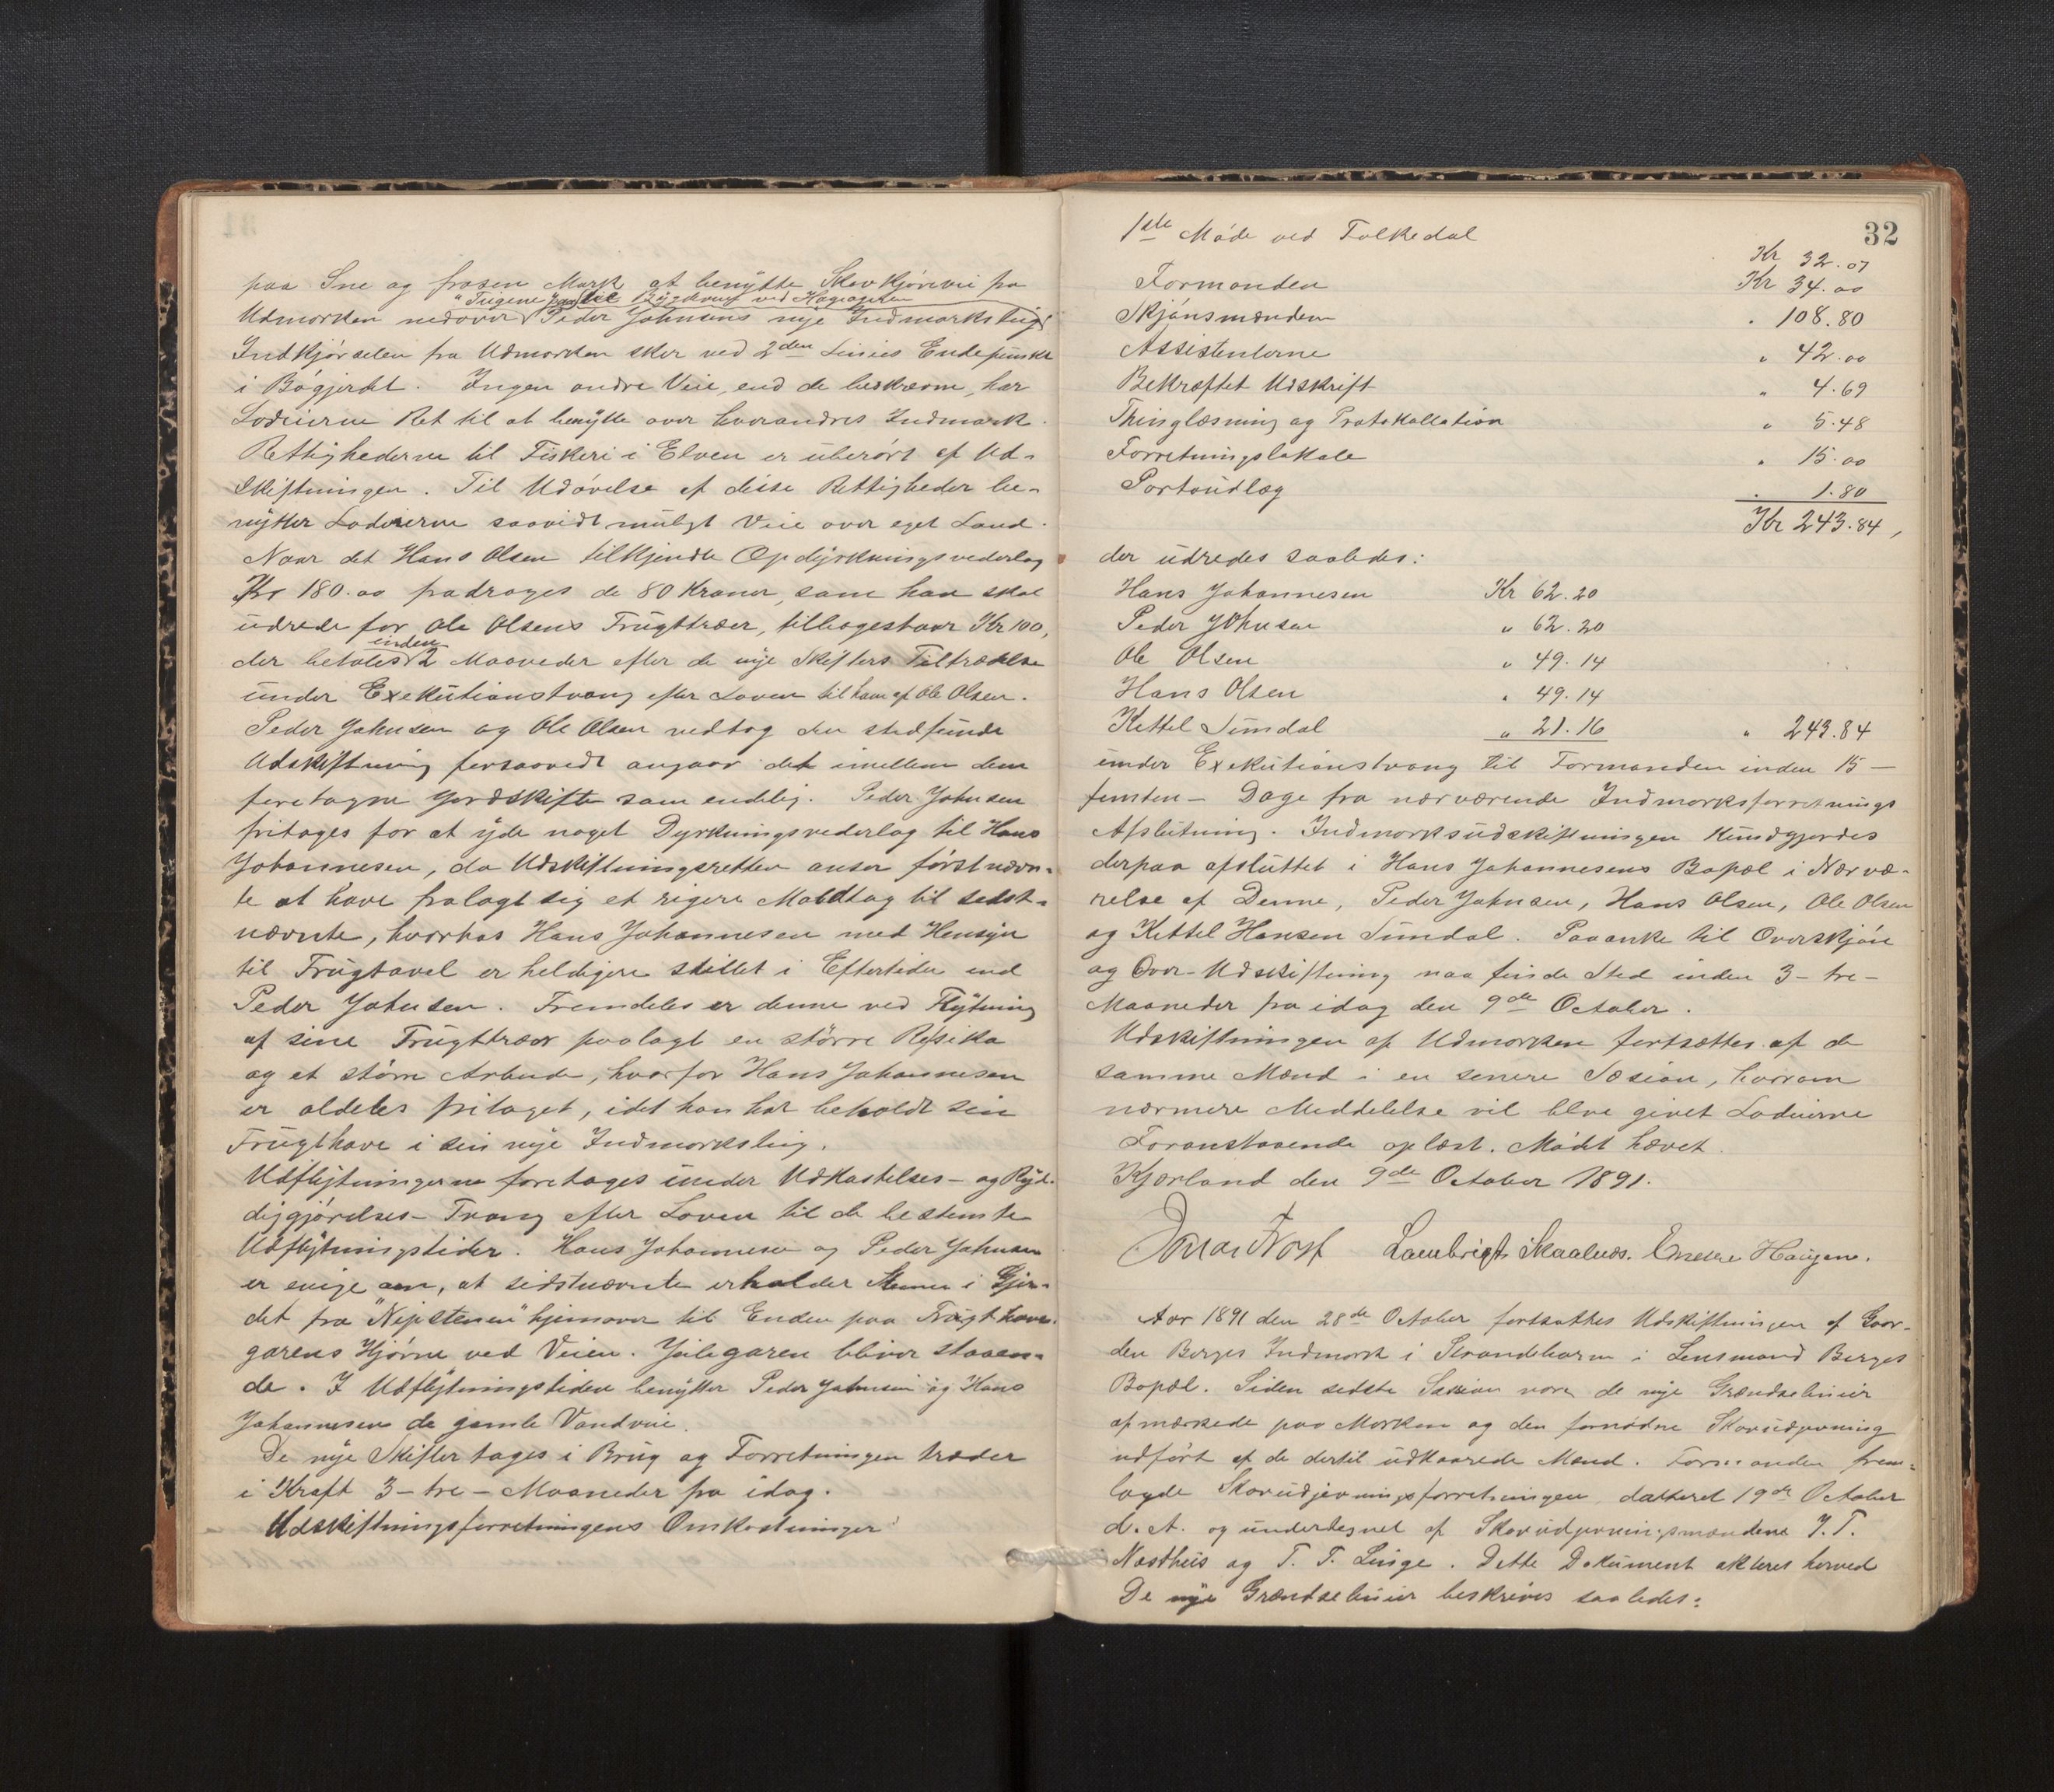 paa Sne og frosen Mark at benytte Skovkjøreveie fra
"Tugene Hans til Bygdevei ved Hageageren
Udmarken nedover Peder Johnsens nye Indmarksteig
Indkjørselen fra Udmarken sker ved 2den Linies Endepunkt
i Bøgjerdet. Ingen andre Veie, end de beskrevne, har
Lodeierne Ret til at benytte over hverandres Indmark.
Rettighederne til Fiskeri i Elven er uberørt af Ud-
skiftningen. Til Udøvelse af disse Rettigheder be-
nytter Lodeierne saavidt muligt Veie over eget Land.
Naar det Hans Olsen tilkjendte Opdyrkningsvederlag
Kr 180.00 fradrages de 80 Kroner, som han skal
udrede for Ole Olsens Frugttræer, tilbagestaar Kr 100,
inden
der betales 2 Maaneder efter de nye Skifters Tiltrædelse
under Exekutionstvang efter Loven til ham af Ole Olsen.
Peder Johnsen og Ole Olsen vedtog den stedfundne
Udskiftning forsaavidt angaar det imellem dem
foretagne Jordskifte som endelig. Peder Johnsen
fritages for at yde noget Dyrkningsvederlag til Hans
Johannesen, da Udskiftningsretten anser førstnævn-
te at have fralagt sig et rigere Matdtag til sidst-
nævnte, hvorhos Hans Johannesen med Hensyn
til Frugtavel er heldigere stillet i Eftertiden end
Peder Johnsen. Fremdeles er denne ved Flytning
af sine Frugttræer paalagt en større Risiko
og et større Arbeide, hvorfor Hans Johannesen
er aldeles fritaget, idet han har beholdt sin
Frugthave i sin nye Indmarksteig.
Udflytningerne foretages under Udkastelses- og Ryd-
diggjørelses-Tvang efter Loven til de bestemte
Udflytningstider. Hans Johannesen og Peder Johnsen
er enige om, at sidstnævnte erholder Stenen i Gjer-
det fra "Nipstenen" hjemover til Enden paa Frugthave-
garens Hjørne ved Veien. Geilegaren bliver staaen-
de. I Udflytningstiden benytter Peder Johnsen og Hans
Johannesen de gamle Vandveie.
De nye Skifter tages i Brug og Forretningen træder
i Kraft 3-tre-Maaneder fra idag.
Udskiftningsforretningens Omkostninger:
32
1ste Møde ved Folkedal Kr 32.07
Formanden Kr 34.00
Skjønsmændene " 108.80
Assistenterne " 42.00
Bekræftet Udskrift " 4.69
Thinglæsning og Protokollation " 5.48
Forretningslokale " 15.00
Portoudlæg " 1.80
Kr 243.84,
der udredes saaledes:
Hans Johannesen Kr 62.20
Peder Johnsen " 62.20
Ole Olsen " 49.14
Hans Olsen " 49.14
Kettel Simdal " 21.16 " 243.84
under Exekutionstvang til Formanden inden 15-
femten- Dage fra nærværende Indmarksforretnings
Afslutning. Indmarksudskiftningen kundgjordes
derpaa afsluttet i Hans Johannesens Bopæl i Nærvæ-
relse af Denne, Peder Johnsen, Hans Olsen, Ole Olsen
og Kettel Hansen Simdal. Paaanke til Overskjøn
og Over-Udskiftning maa finde Sted inden 3-tre-
Maaneder fra idag den 9de October.
Udskiftningen af Udmarken fortsættes af de
samme Mænd i en senere Session, hvorom
nærmere Meddelelse vil blve givet Lodeierne
Foranstaaende oplæst. Mødet hævet.
Kjærland den 9de October 1891.
Lambrigt Skaalnes. Endre Haugen.
Aar 1891 den 28de October fortsattes Udskiftningen af Gaar-
den Berges Indmark i Strandebarm i Lensmand Berges
Bopæl. Siden sidste Session vare de nye Grændselinier
afmærkede paa Marken og den fornødne Skovudjevning
udført af de dertil udkaarede Mænd. Formanden frem-
lagde Skovudjevningsforretningen, datteret 19de October
d. A. og undertegnet af Skovudjevningsmændene J. T.
Næsthus og T. T. Linge. Dette Dokument akteres herved
De nye Grændselinier beskrives saaledes: